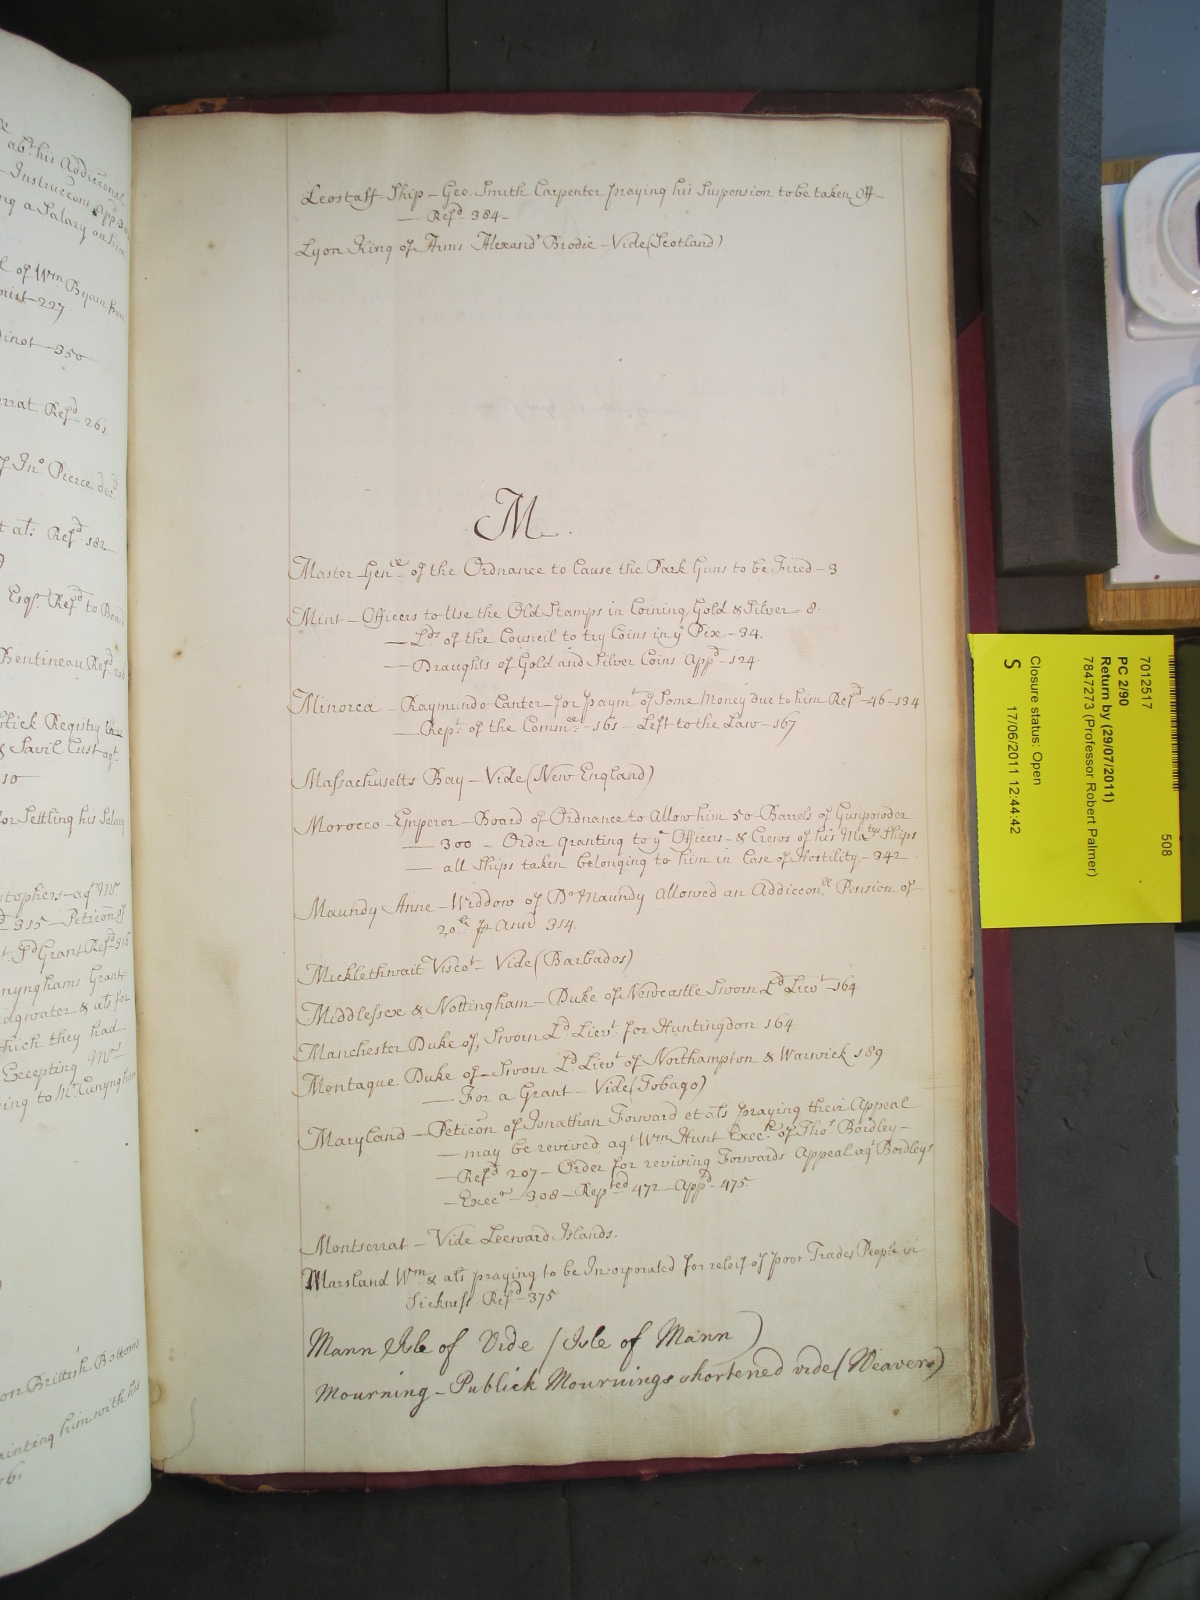 Leostaff Ship - Geo. Smith Carpenter praying his Suspension to be taken Off -
— Refd. 384 -
Lyon King of Arms Alexandr Brodie - Vide (Scotland)
M.
Master Genll. of the Ordnance to Cause the Park Guns to be Fired - 3
Mint - Officers to Use the Old Stamps in Coining Gold & Silver - 8.
— Lds of the Council to try Coins in ye Pix - 34.
— Draughts of Gold and Silver Coins Appd - 124.
Minorca - Raymundo Canter for paymt of Some Money due to him Refd - 46 - 134
Rept. of the Commee. - 161 - Left to the Law - 167
Massachusetts Bay - Vide (New England)
Morocco - Emperor - Board of Ordnance to Allow him 50 - Barrels of Gunpowder
— 300 - Order granting to ye Officers - & Crews of his Mats Ships
— all Ships taken belonging to him in Case of Hostility - 342
Maundy Anne - Widdow of Dr Maundy Allowed an Addiconll Pension of
20 £ p Annũ 314.
Micklethwait Viscot - Vide (Barbados)
Middlesex & Nottingham - Duke of Newcastle Sworn Ld Lievt - 164
Manchester Duke of, Sworn Ld. Lievt for Huntingdon 164
Montague Duke of - Sworn Ld. Lievt of Northampton & Warwick 189
— For a Grant - Vide (Tobago)
Maryland - Peticon of Jonathan Forward et als praying their Appeal
— may be revived agt Wm Hunt Execr. of Thos. Bordley -
— Refd 207 - Order for reviving Forwards Appeal agt Bordleys
— Execr - 308 - Repted 472 - Appd - 475
Montserrat - Vide Leeward Islands.
Marsland Wm & als praying to be Incorporated for releif of poor Trades People in
Sickness Refd - 375
Mann Isle of Vide (Isle of Mann)
Mourning - Publick Mournings shortened vide (Weavers)
abt. his Addiconal
Instruccons Appd
ng a Salary on him
of Wm Byam from
- 227
- 350
rrat Refd 261
Jno. Pierce decd
t als Refd 182
Esqr. Refd to Board
Bentineau Refd
blick Registry
& Savil Cust agt
10
for Settling his Salary
stophers - agt Mr
315 - Peticon of
Grant Refd 316
nynghams Grant
dgwater & als for
which they had
Excepting Mr
ing to Mr. Cunyngham
on Brittish Bottoms
ainting him with his
508
7012517
PC 2/90
Return by (29/07/2011)
7847273 (Professor Robert Palmer)
Closure status: Open
17/06/2011 12:44:42
S